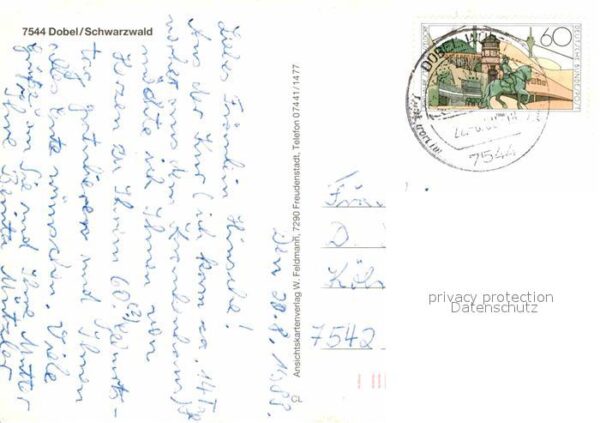 7544 Dobel/Schwarzwald
Den 20.8.1988.
Liebes Fräulein Hirsche!
Aus der Kur (ich kam ca. 14 Tge
vorher aus dem Krankenhaus)
möchte ich Ihnen von
Herzen zu Ihrem 60(?) Geburts-
tag gratulieren und Ihnen
alles Gute wünschen. Viele
Grüße an Sie und Ihre Mutter
Ihre
Ansichtskartenverlag W. Feldmann, 7290 Freudenstadt, Telefon 07441/1477
60
DEUTSCHE BUNDESPOST
DOBEL
7544
D.
7542
privacy protection
Datenschutz